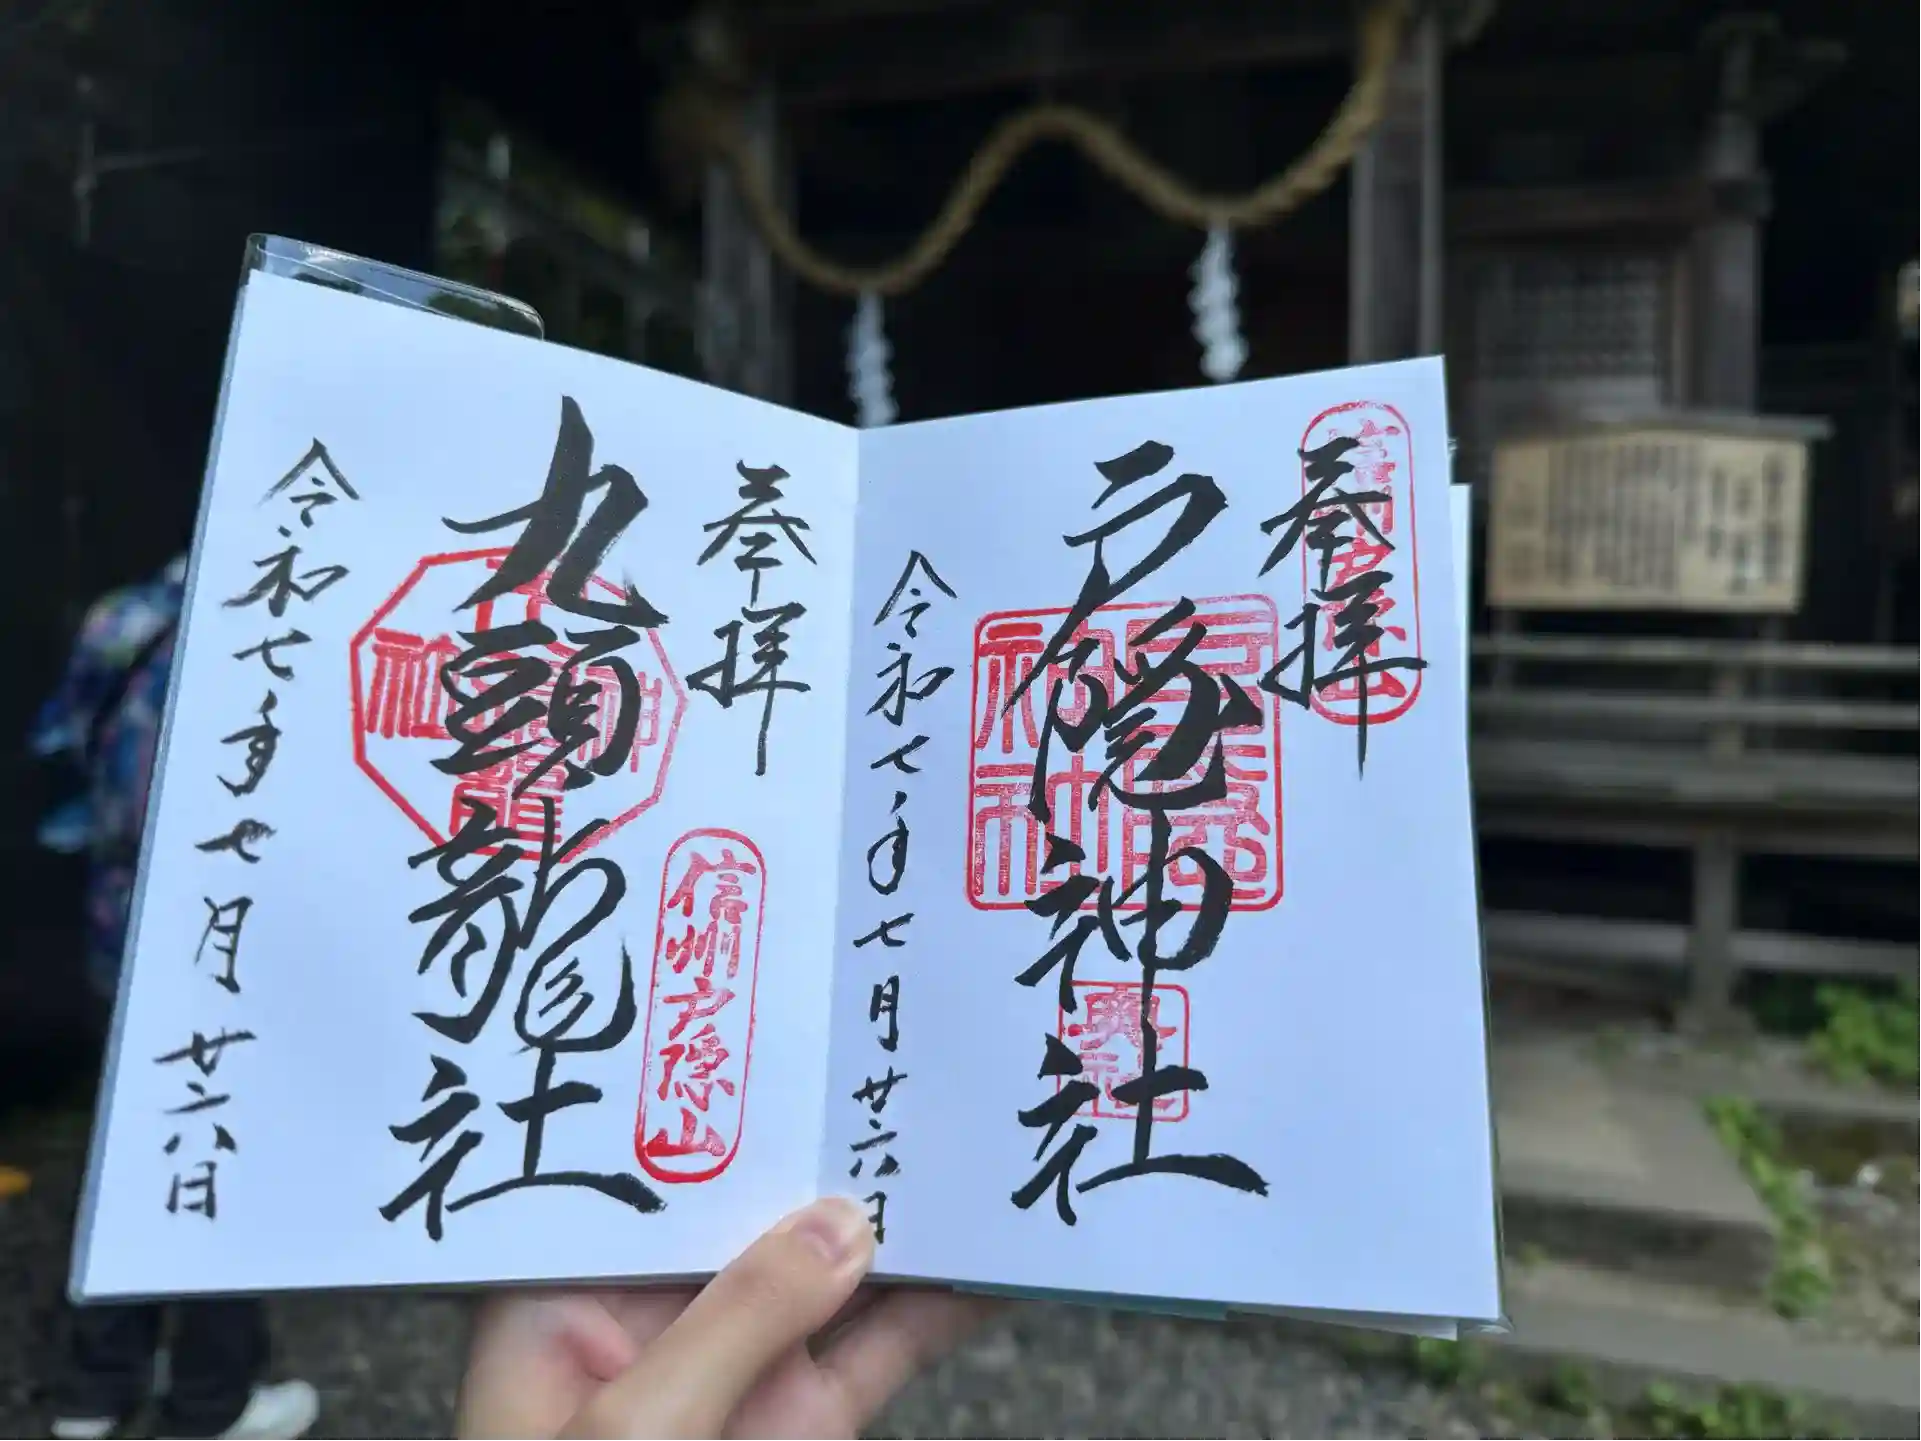 奉拝
信州戸隠山
戸隠神社
戸隠神社
奥社
令和七年七月廿六日
奉拝
九頭龍社
信州戸隠山
令和七年七月廿六日